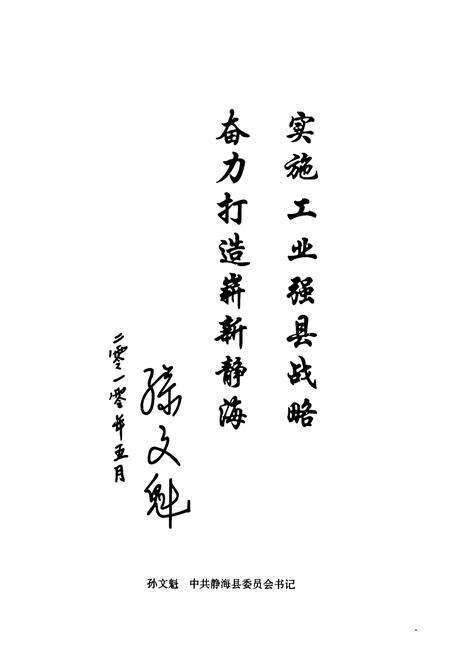 实施工业强县战略
奋力打造崭新静海
孙文魁
二零一零年五月
孙文魁 中共静海县委员会书记